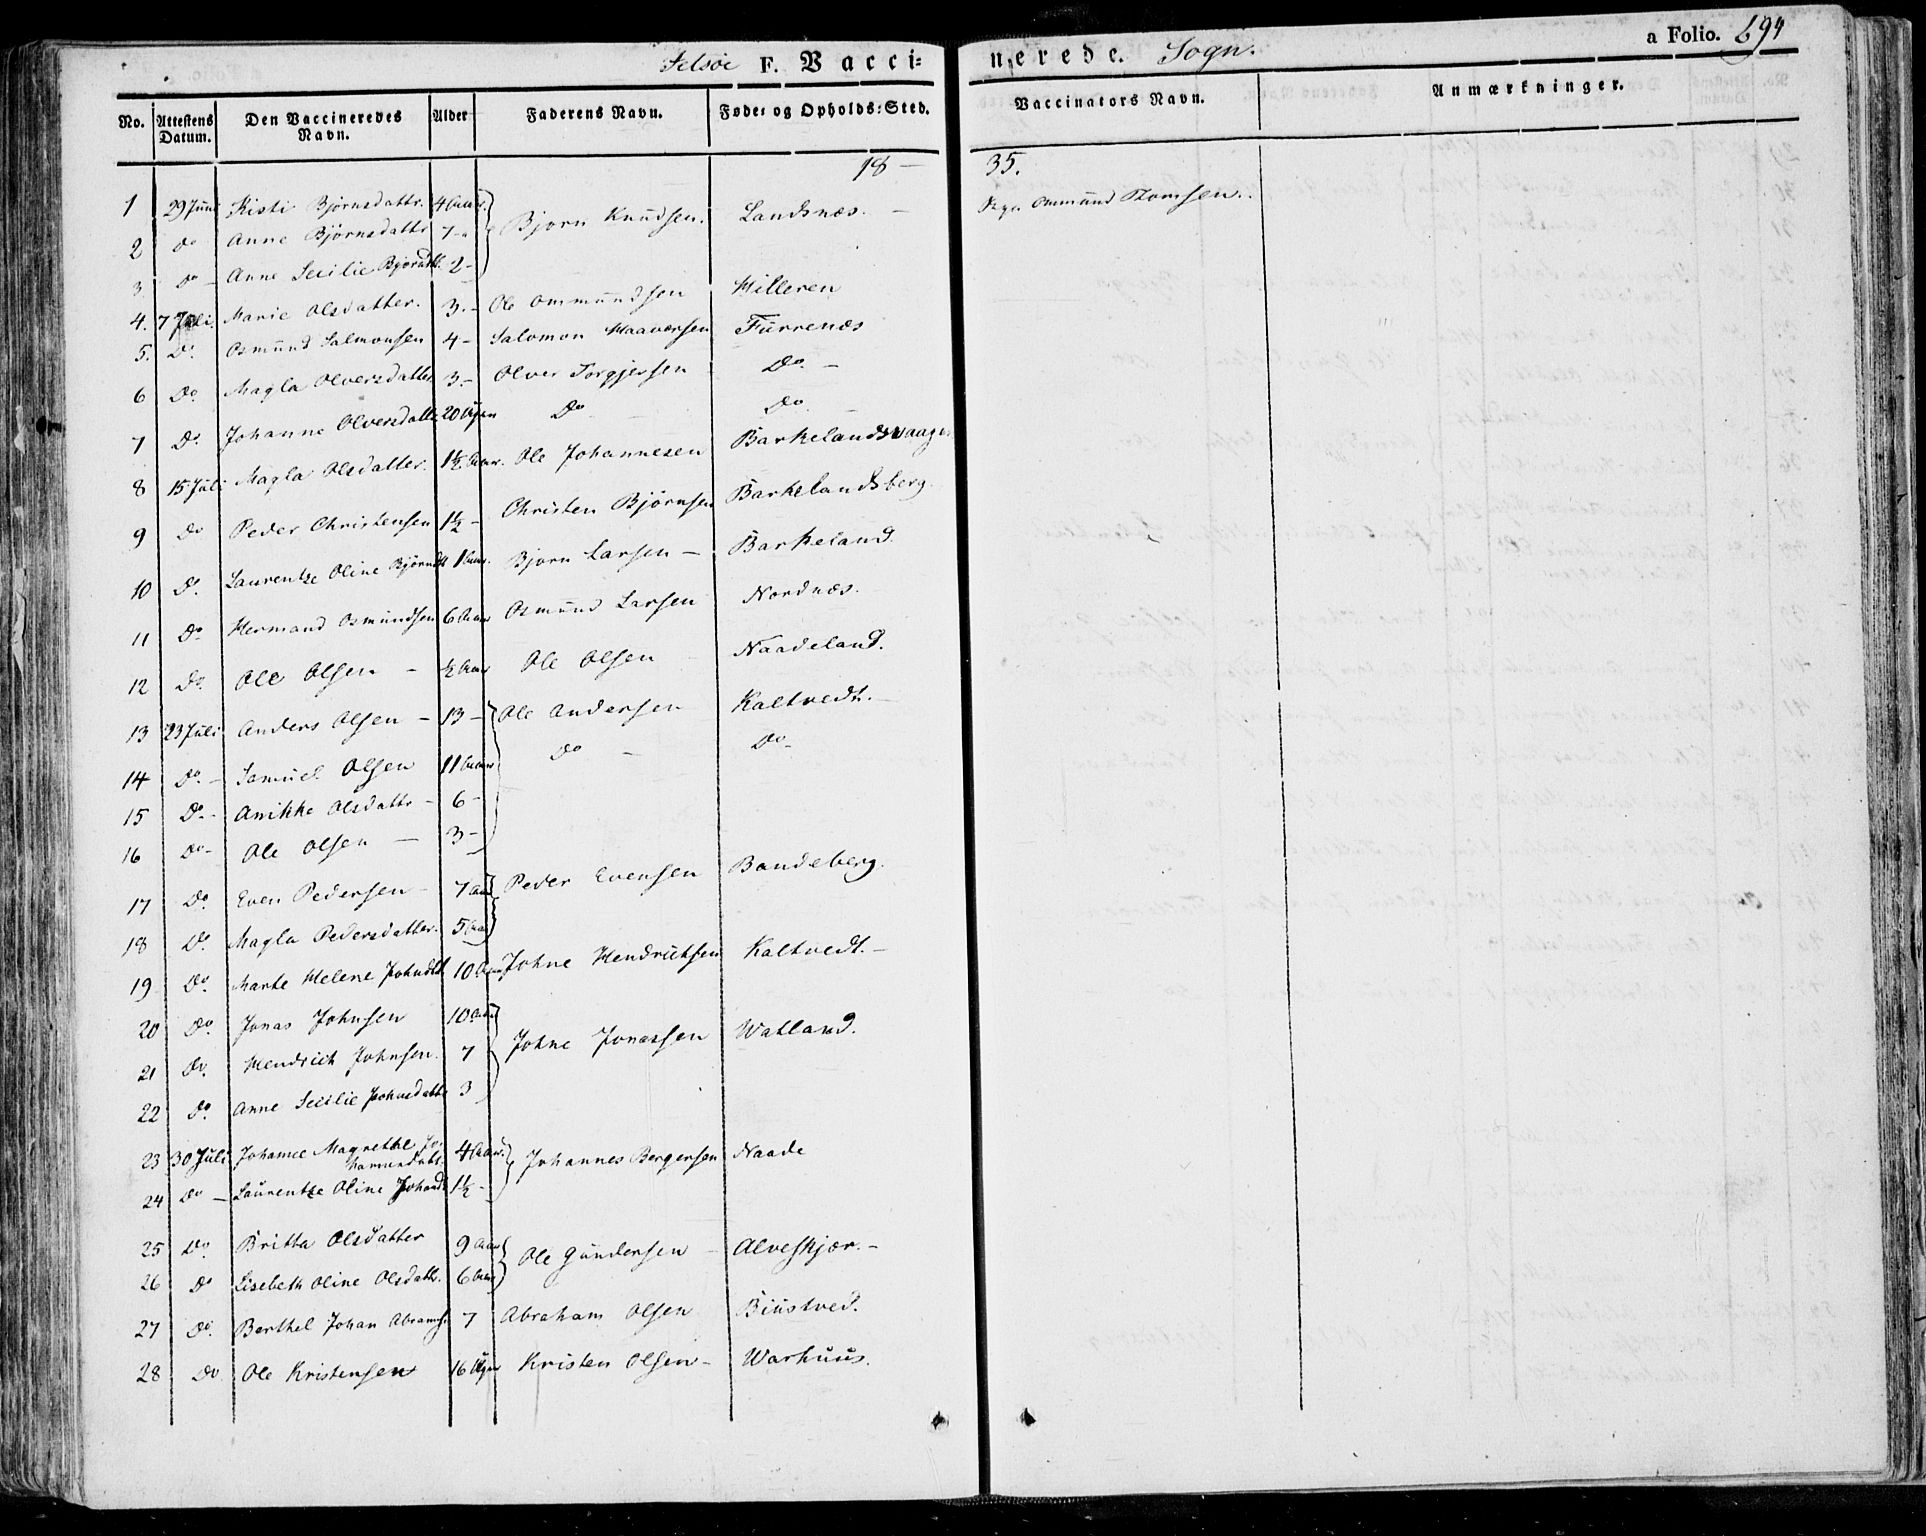 Jelsöe F. Vaccinerede. Sogn. a Folio. 694
No. Attestens Datum. Den Vaccineredes Navn. Alder Faderens Navn. Føde- og Opholds-Sted. Vaccinators Navn. Anmærkninger.
18 — 35.
1 29 Juni Kisti Bjørnsdattr. 4 Aar. Bjørn Knudsen. Landsnæs. — Ommund Thomsen.
2 do Anne Bjørnsdattr 7 -
3 do - Anne Secilie Bjørnsdtt. 2 -
4. 7 Juli. Marie Olsdatter. 3. - Ole Ommundsen Hilleren
5. Do. Osmund Salmonsen 4 - Salomon Haaversen Furrenæs
6 Do. Magla Olversdatter 3. - Olver Torgjersen Do. -
7 Do. Johanne Olversdattr 20 Ugen Do Do
8 15 Juli Magla Olsdatter. 1½ Aar. Ole Johannesen Barkelandsvaagen
9 Do Peder Christensen 1½ - Christen Bjørnsen Barkelandsberg.
10 Do. Laurentze Oline Bjørnsdtt 1 Aar. Bjørn Larsen — Barkeland.
11 Do. Hermand Osmundsen 6 Aar Osmund Larsen Nordnæs.
12 Do. Ole Olsen - ½ Aar Ole Olsen - Naadeland.
13 23 Juli Anders Olsen - 13 - Ole Andersen Kaltvedt. -
14 Do. - Samuel Olsen 11 Aar Do - Do -
15 Do. - Anikke Olsdattr - 6 -
16 Do - Ole Olsen — 3 -
17 Do. Even Pedersen - 7 Aar Peder Evensen Bandeberg.
18 Do. Magla Pedersdatter. 5 Aar
19 Do. Marte Helene Johnsdtt 10 Aar Johne Hendrichsen Kaltvedt. -
20 Do. Jonas Johnsen 10 Aar Johne Jonassen Watland.
21 Do. Hendrich Johnsen. 7
22 Do. Anne Secilie Johnsdattr 3
23 30 Juli Johanne Magrethe Jo-
hannesdatt. 4 Aar. Johannes Bergersen Naade
24 Do — Laurentze Oline Johansdt 1½ -
25 Do. Britta Olsdatter 9 Aar Ole Gundersen - Alveskjær. -
26 Do Lisebeth Oline Olsdattr. 6 Aar
27 Do. Berthel Johan Abrams. 7 Abraham Olsen Biustved.
28 Do Ole Kristensen 16 Ugen Kristen Olsen - Warhuus.